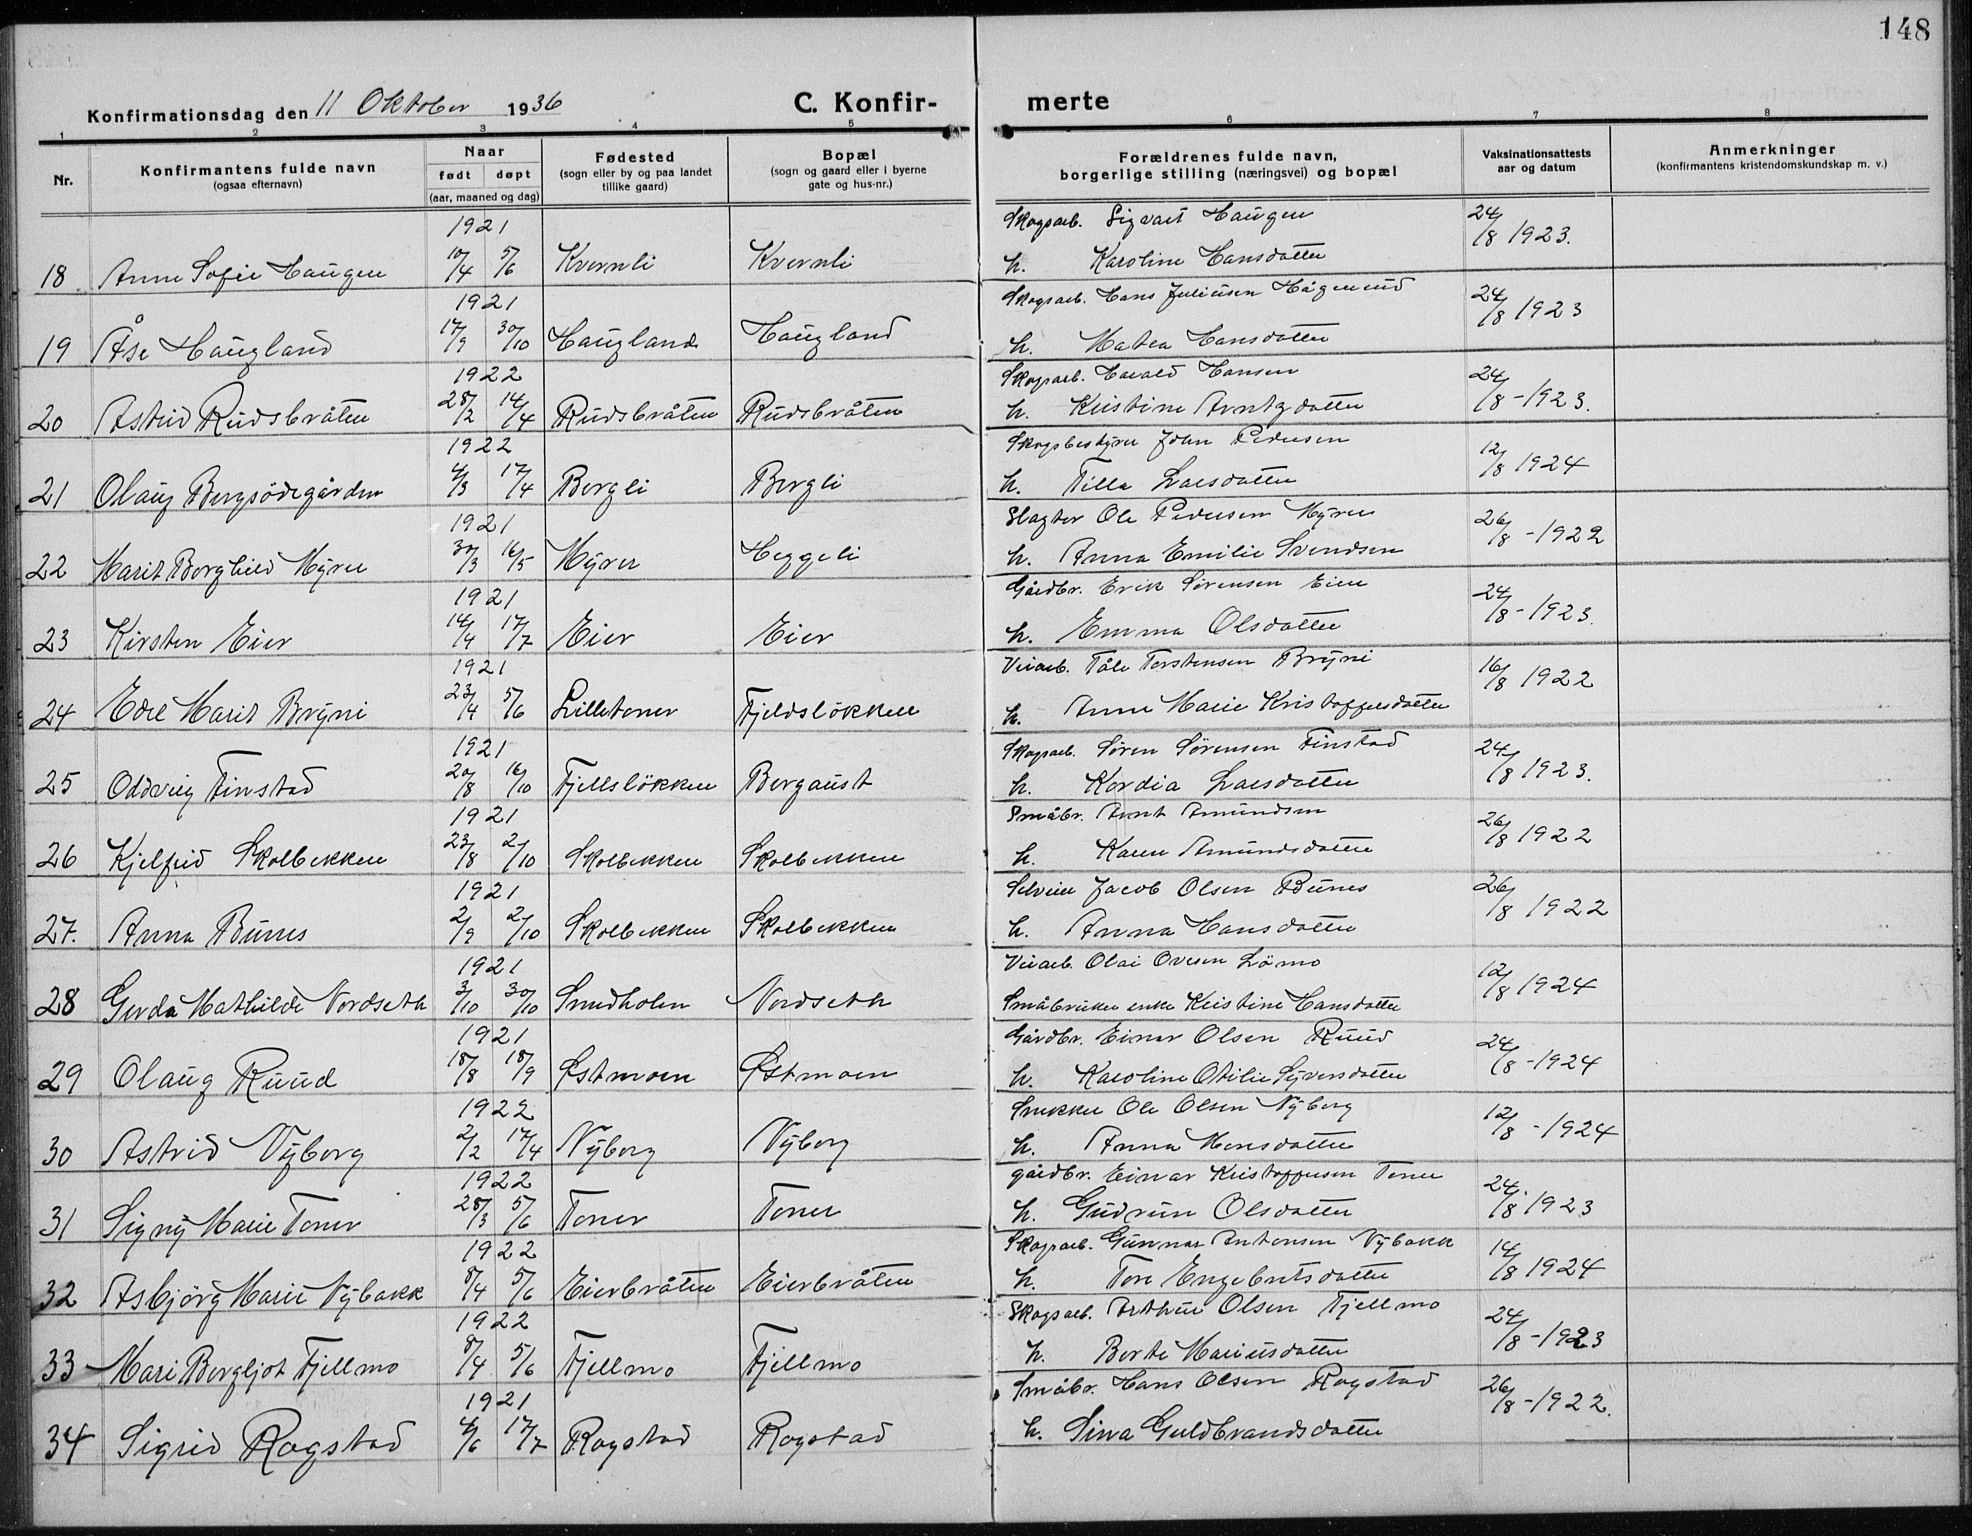 148
Konfirmationsdag den 11 Oktober 1936
C. Konfir- merte
1 2 3 4 5 6 7 8
Nr.
Konfirmantens fulde navn
(ogsaa efternavn)
Naar
født døpt
(aar, maaned og dag)
Fødested
(sogn eller by og paa landet
tillike gaard)
Bopæl
(sogn og gaard eller i byerne
gate og hus-nr.)
Forældrenes fulde navn,
borgerlige stilling (næringsvei) og bopæl
Vaksinationsattests
aar og datum
Anmerkninger
(konfirmantens kristendomskundskap m. v.)
1921 Skogsarb. Sigvart Haugen
18 Anne Sofie Haugen 10/4 5/6 Kvernli Kvernli h. Karoline Hansdatter 24/8 1923.
1921 Skogsarb. Hans Juliussen Hågenrud
19 Åse Haugland 17/9 30/10 Haugland Haugland h. Matea Hansdatter 24/8 1923
1922 Skogsarb. Harald Hansen
20 Astrid Rudsbråten 28/2 14/4 Rudsbråten Rudsbråten h. Kristine Arntzdatter 24/8 - 1923.
1922 Skogsbestyrer John Pedersen
21 Olaug Bergsödegården 4/3 17/4 Bergli Bergli h. Tilla Larsdatter 12/8 1924
1921 Slagter Ole Pedersen Myrer
22 Marit Borghild Myrer 30/3 16/5 Myrer Heggeli h. Anna Emilie Svendsen 26/8 - 1922
1921 Gårdbr. Erik Sørensen Eier
23 Kirsten Eier 14/4 17/7 Eier Eier h. Emma Olsdatter 24/8 - 1923.
1921 Veiarb. Tåle Torstensen Bryni
24 Edel Marit Bryni 23/4 5/6 Lilletoner Fjeldsløkken h. Anne Marie Kristoffersdatter 16/8 1922
1921 Skogsarb. Søren Sørensen Finstad
25 Oddveig Finstad 20/8 16/10 Fjellsløkken Bergaust h. Kordia Larsdatter 24/8 1923.
1921 Småbr. Arnt Amundsen
26 Kjelfrid Skolbekken 23/8 2/10 Skolbekken Skolbekken h. Karen Amundsdatter 26/8 1922
1921 Selveier Jacob Olsen Bunes
27. Anna Bunes 2/9 2/10 Skolbekken Skolbekken h. Anna Hansdatter 26/8 1922
1921 Veiarb. Olai Ovesen Lømo
28 Gerda Mathilde Nordseth 3/10 30/10 Smedholen Nordseth Småbruker enke Kristine Hansdatter 12/8 1924
1921 Gårdbr. Einar Olsen Ruud
29 Olaug Ruud 18/8 18/9 Østmoen Østmoen h. Karoline Otilie Syversdatter 24/8 - 1924
1922 Snekker Ole Olsen Nyborg
30 Astrid Nyborg 2/2 17/4 Nyborg Nyborg h. Anna Monsdatter 12/8 - 1924
1922 gårdbr. Einar Kristoffersen Toner
31 Signy Marie Toner 28/3 5/6 Toner Toner h. Gudrun Olsdatter 24/8 1923
1922 Skogsarb. Gunnar Antonsen Nybakk
32 Asbjörg Marie Nybakk 8/4 5/6 Eierbråten Eierbråten h. Tore Engebretsdatter 14/8 1924
1922 Skogsarb. Arthur Olsen Fjellmo
33 Mari Bergljot Fjellmo 8/4 5/6 Fjellmo Fjellmo h. Berte Mariusdatter 24/8 - 1923
1921 Småbr. Hans Olsen Rogstad
34 Sigrid Rogstad 4/6 17/7 Rogstad Rogstad h. Sina Guldbrandsdatter 26/8 - 1922.